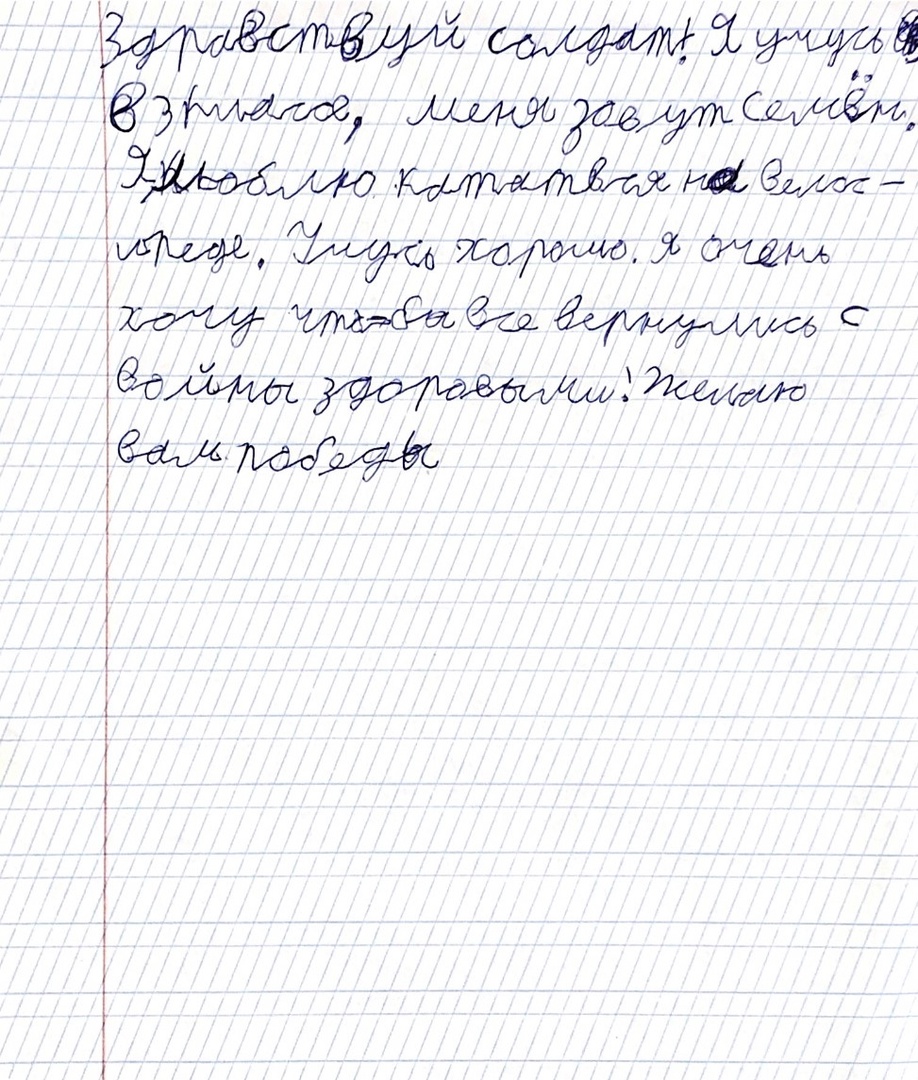 Здравствуй солдат! Я учусь
в 3 класе, меня зовут Семён.
Я люблю кататься на велос-
ипеде. Учусь хорошо. Я очень
хочу что-бы все вернулись с
войны здоровыми! Желаю
вам победы